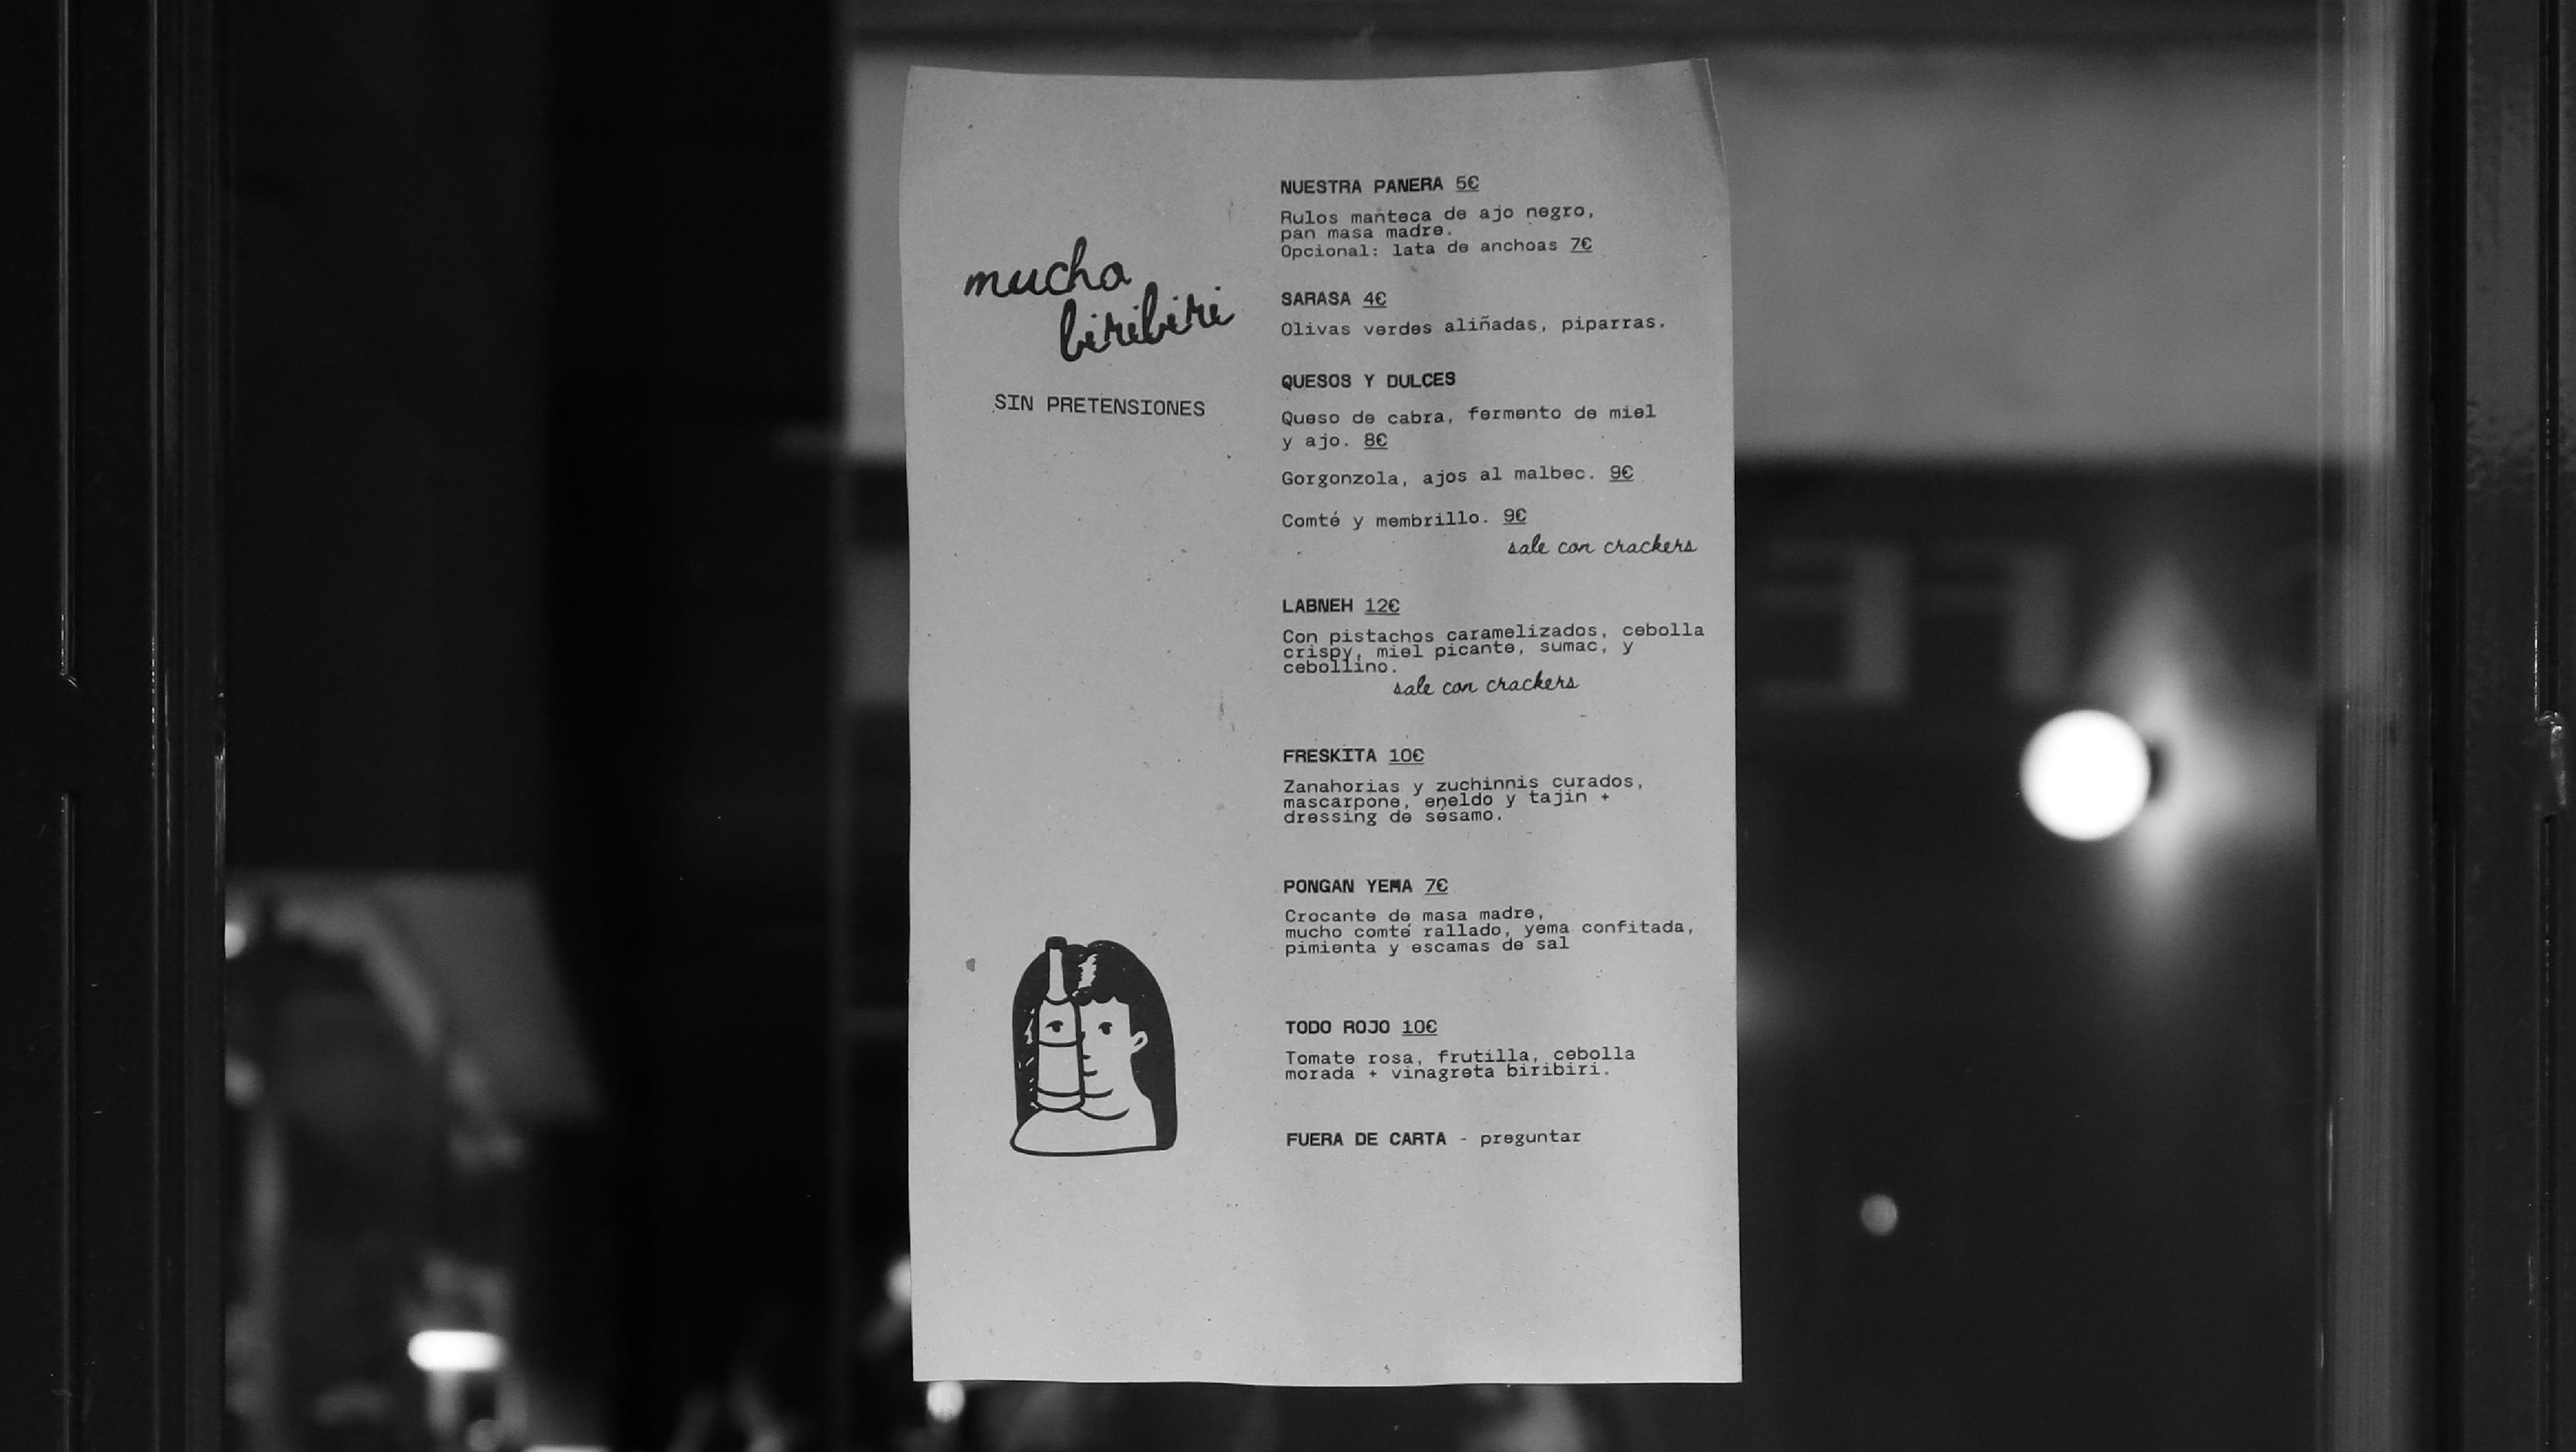 mucho
biribiri
SIN PRETENSIONES
NUESTRA PANERA 5€
Rulos manteca de ajo negro,
pan masa madre.
Opcional: lata de anchoas 7€
SARASA 4€
Olivas verdes aliñadas, piparras.
QUESOS Y DULCES
Queso de cabra, fermento de miel
y ajo. 8€
Gorgonzola, ajos al malbec. 9€
Comté y membrillo. 9€
sale con crackers
LABNEH 12€
Con pistachos caramelizados, cebolla
crispy, miel picante, sumac, y
cebollino.
sale con crackers
FRESKITA 10€
Zanahorias y zuchinnis curados,
mascarpone, eneldo y tajin +
dressing de sesamo.
PONGAN YEMA 7€
Crocante de masa madre,
mucho comté rallado, yema confitada,
pimienta y escamas de sal
TODO ROJO 10€
Tomate rosa, frutilla, cebolla
morada + vinagreta biribiri.
FUERA DE CARTA - preguntar